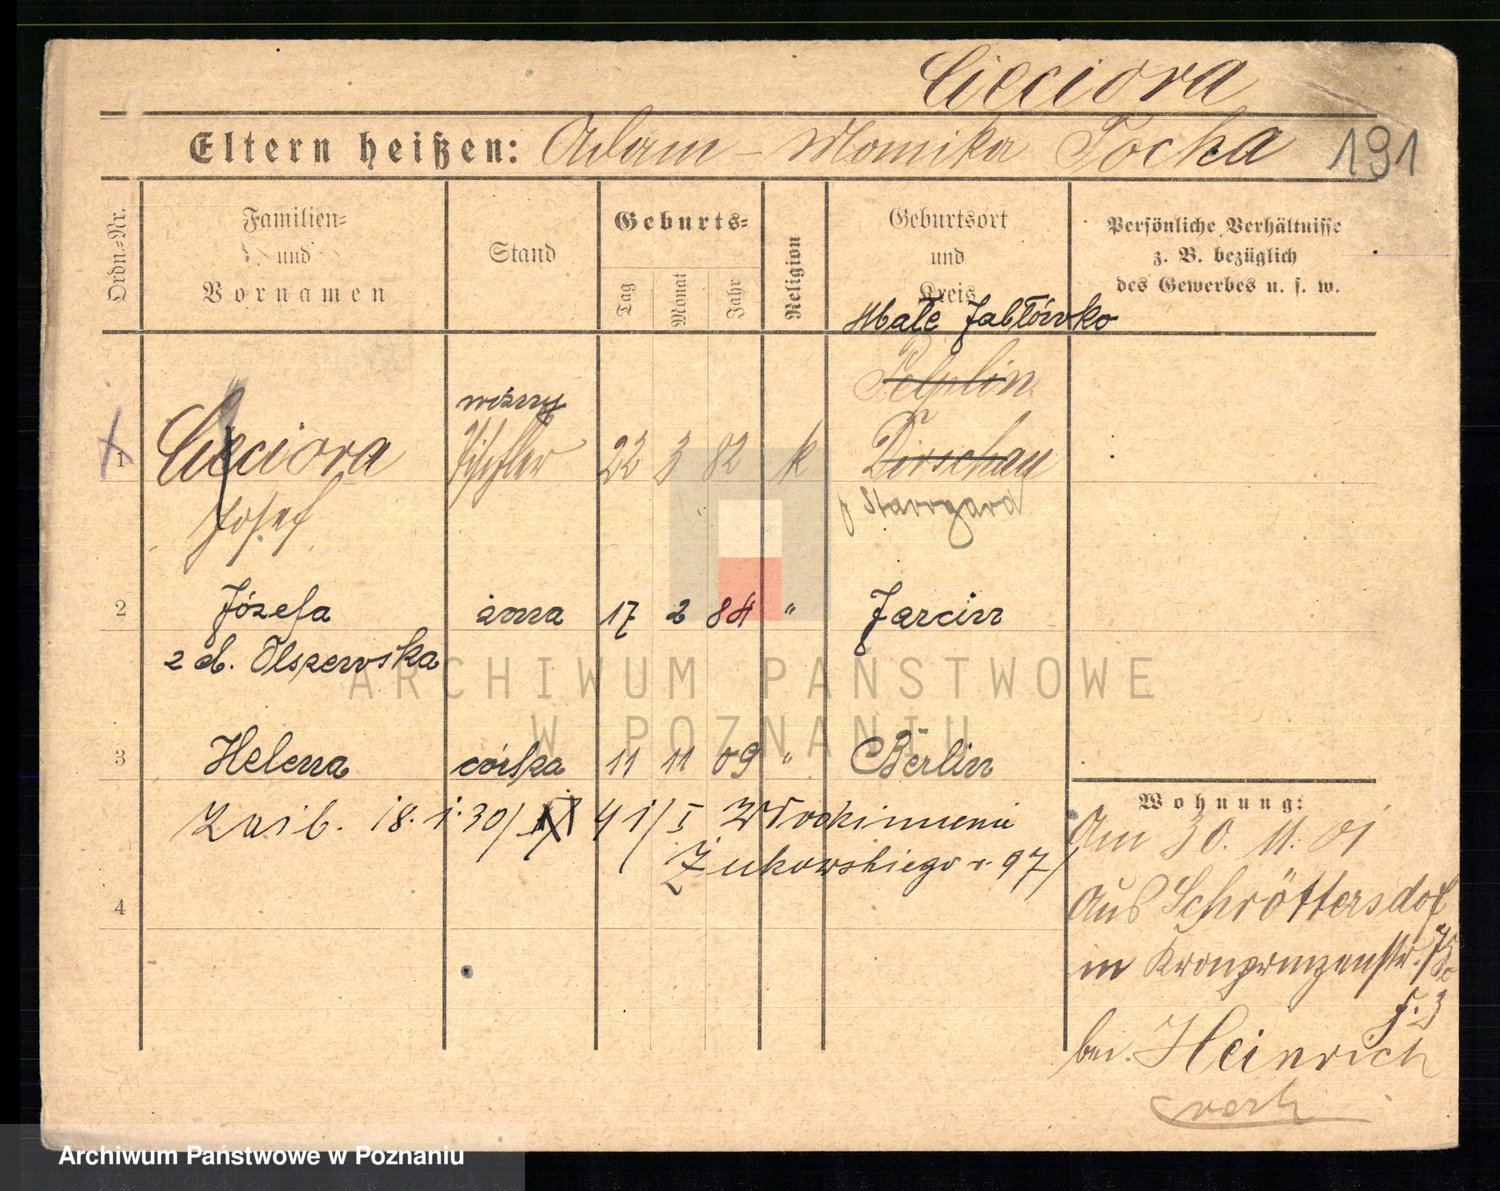 Cieciora
Eltern heißen: Adam – Monika Pocha 191
Ordn.-Nr.
Familien- und Vornamen
Stand
Geburts-
Tag Monat Jahr
Religion
Geburtsort und Kreis
Persönliche Verhältnisse
z. B. bezüglich
des Gewerbes u. s. w.
Małe Jabłówko
Pelplin
woźny
1 Cieciora Tischler 22 3 82 k Dirschau
Josef Starrgard
2 Józefa żona 17 2 84 " Jarcin
z d. Olszewska
3 Helena córka 11 11 09 " Berlin
18.1.30/ 41/I
Żukowskiego 97/
4
Wohnung:
Am 30. 11. 01
Aus Schröttersdof
in Kronprinzenstr.
bei Heinrich
ARCHIWUM PAŃSTWOWE
W POZNANIU
Archiwum Państwowe w Poznaniu